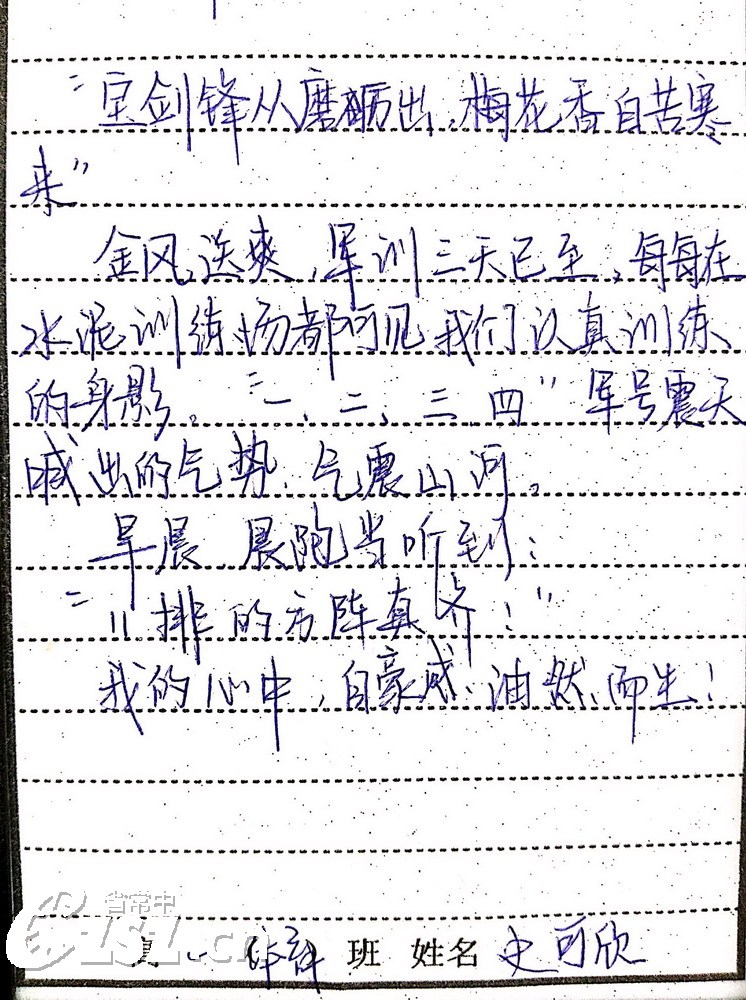 “宝剑锋从磨砺出,梅花香自苦寒
来”
金风送爽,军训三天已至,每每在
水泥训练场都可见我们认真训练
的身影。“一、二、三、四”军号震天
喊出的气势,气震山河。
早晨,晨跑当听到:
“11排的方阵真齐!”
我的心中,自豪感油然而生!
班 姓名 史可欣
省常中